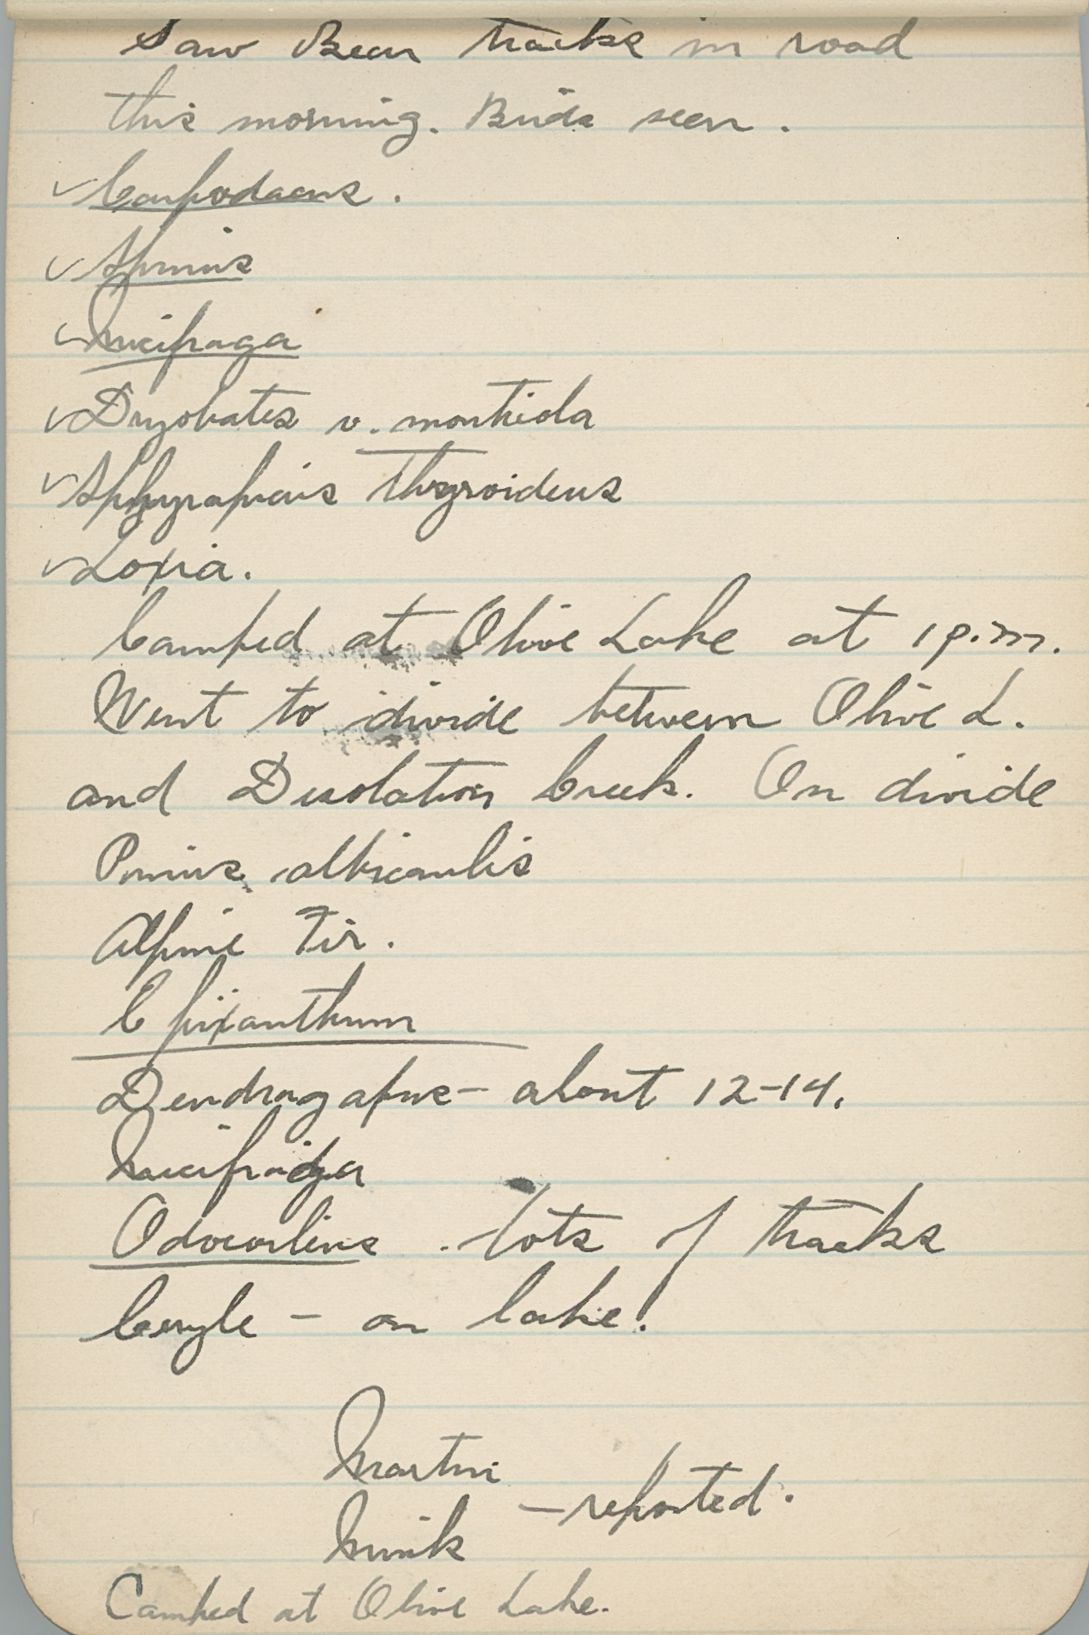 Saw Bear tracks in road
this morning. Birds seen.
✓ Carpodacus.
✓ Spinus
✓ Nucifraga
✓ Dryobates v. monticola
✓ Sphyrapicus thyroideus
✓ Loxia.
Camped at Olive Lake at 1 p.m.
Went to divide between Olive L.
and Desolation Creek. On divide
Pinus albicaulis
Alpine Fir.
C pixanthum
Dendragapus - about 12-14.
Nucifraga
Odocoileus - lots of tracks
Ceryle - on lake.
Martin
- reported.
Mink
Camped at Olive Lake.